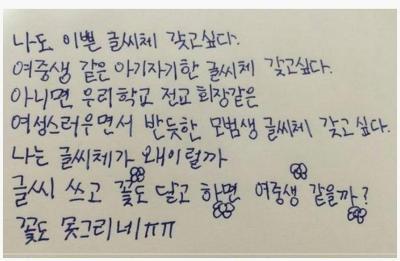 나도 이쁜 글씨체 갖고싶다.
여중생 같은 아기자기한 글씨체 갖고싶다.
아니면 우리학교 전교 회장같은
여성스러우면서 반듯한 모범생 글씨체 갖고싶다.
나는 글씨체가 왜이럴까
글씨 쓰고 꽃도 달고 하면 여중생 같을까?
꽃도 못그리네ㅠㅠ